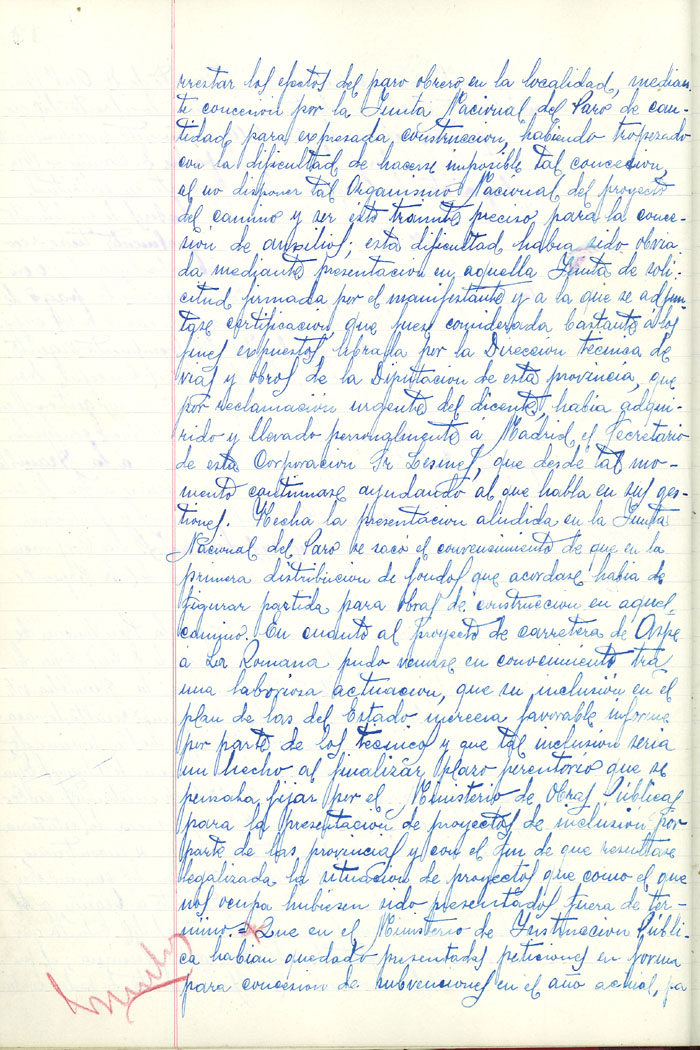 rrestar los efectos del paro obrero en la localidad, median
te concesion por la Junta Nacional del Paro de can-
tidad para expresada construccion, habiendo tropezado
con la dificultad de hacerse imposible tal concecion,
al no disponer tal Organismo Nacional del proyecto
del camino y ser este tramite preciso para la conce-
sion de auxilios; esta dificultad habia sido obvia
da mediante presentacion en aquella Junta de soli-
citud firmada por el manifestante y a la que se adjun
tase certificacion, que fuese considerada bastante á los
fines expuestos, librada por la Direccion tecnica de
vias y obras de la Diputacion de esta provincia, que
por reclamación urgente del dicente, habia adqui-
rido y llevado personalmente á Madrid, el Secretario
de esta Corporacion Sr. que desde tal mo-
mento continuase ayudando al que habla en sus ges-
tiones. Hecha la presentacion aludida en la Junta
Nacional del Paro se sacó el convensimiento de que en la
primera distribucion de fondos que acordase, habia de
figurar partida para obras de construccion en aquel
camino. En cuanto al Proyecto de carretera de Aspe
á La Romana pudo venirse en convencimiento tra
una laboriosa actuacion, que su inclusión en el
plan de las del Estado merceria favorable informe
por parte de los tecnicos y que tal inclusión seria
un hecho al finalizar plazo perentorio que se
pensaba fijar por el Ministerio de Obras Públicas
para la presentacion de proyectos de inclusión por
parte de las provincias y con el fin de que resultase
legalizada la situacion de proyectos que como el que
nos ocupa hubiesen sido presentados fuera de ter-
mino.= Que en el Ministerio de Instruccion Públi-
ca habian quedado presentadas peticiones en forma
para concesion de subvenciones en el año actual, pa